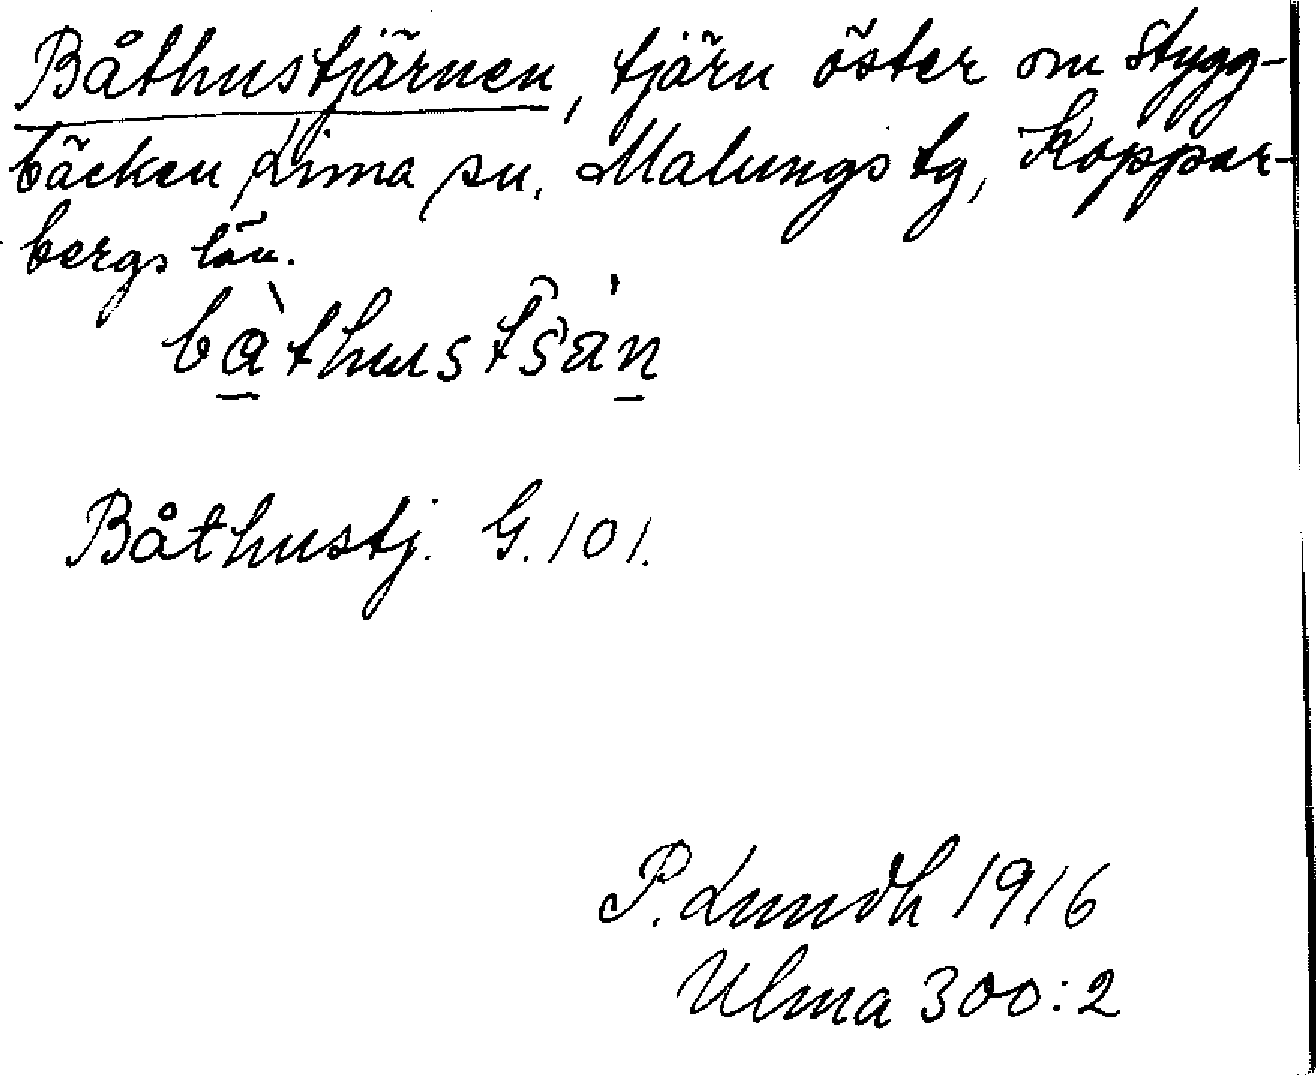 Båthustjärnen, tjärn öster om Stygg-
bäcken Lima sn. Malungs tg, Koppar-
bergs län.
bàthustšán
Båthustj. G. 101.
P. Lundh 1916
Ulma 300:2